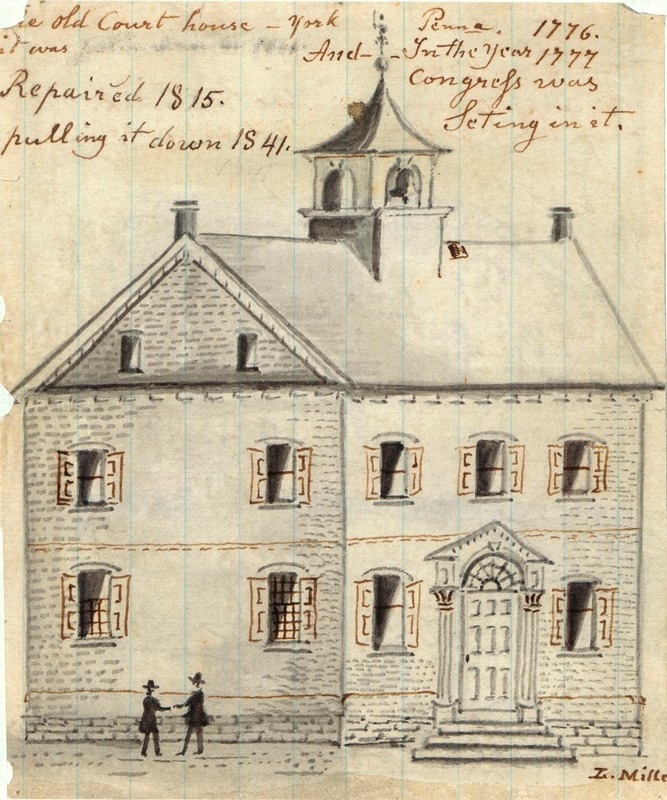 old Court house - York Penna. 1776.
it was And - In the Year 1777
Repaired 1815. Congress was
pulling it down 1841. Seting in it.
L. Mille